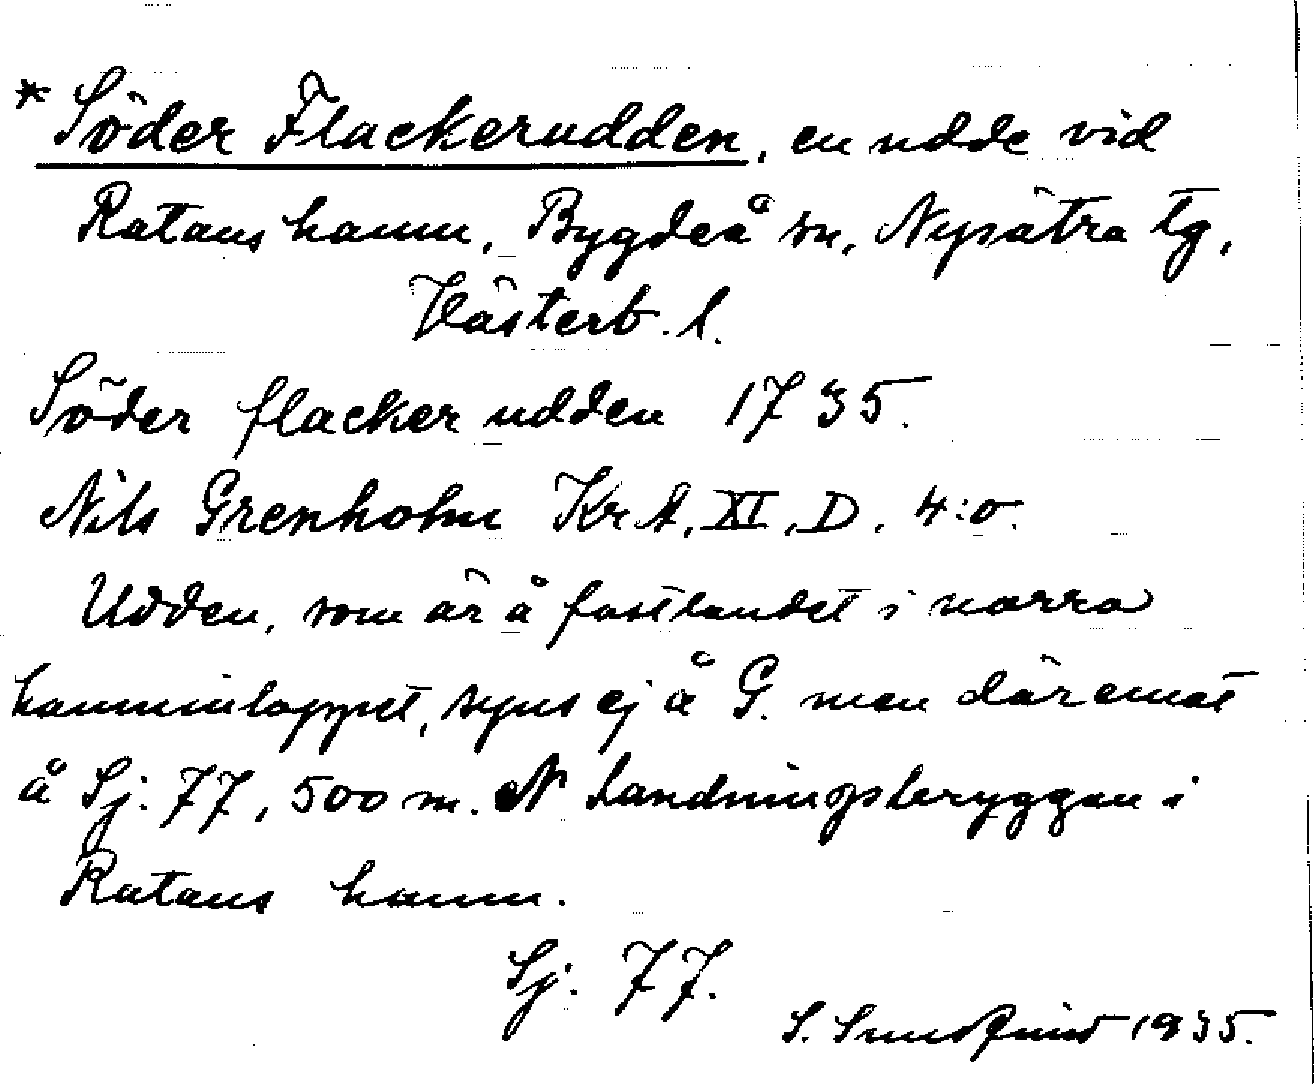 * Söder Flackerudden, en udde vid
Ratans hamn, Bygdeå sn, Nysätra tg,
Västerb. l.
Söder flacker udden 1735.
Nils Grenholm Kr A, XI, D, 4:o.
Udden, som är å fastlandet i norra
hamninloppet, synes ej å G. men däremot
å Sj: 77, 500 m. N landningsbryggan i
Ratans hamn.
Sj: 77.
S. 1935.